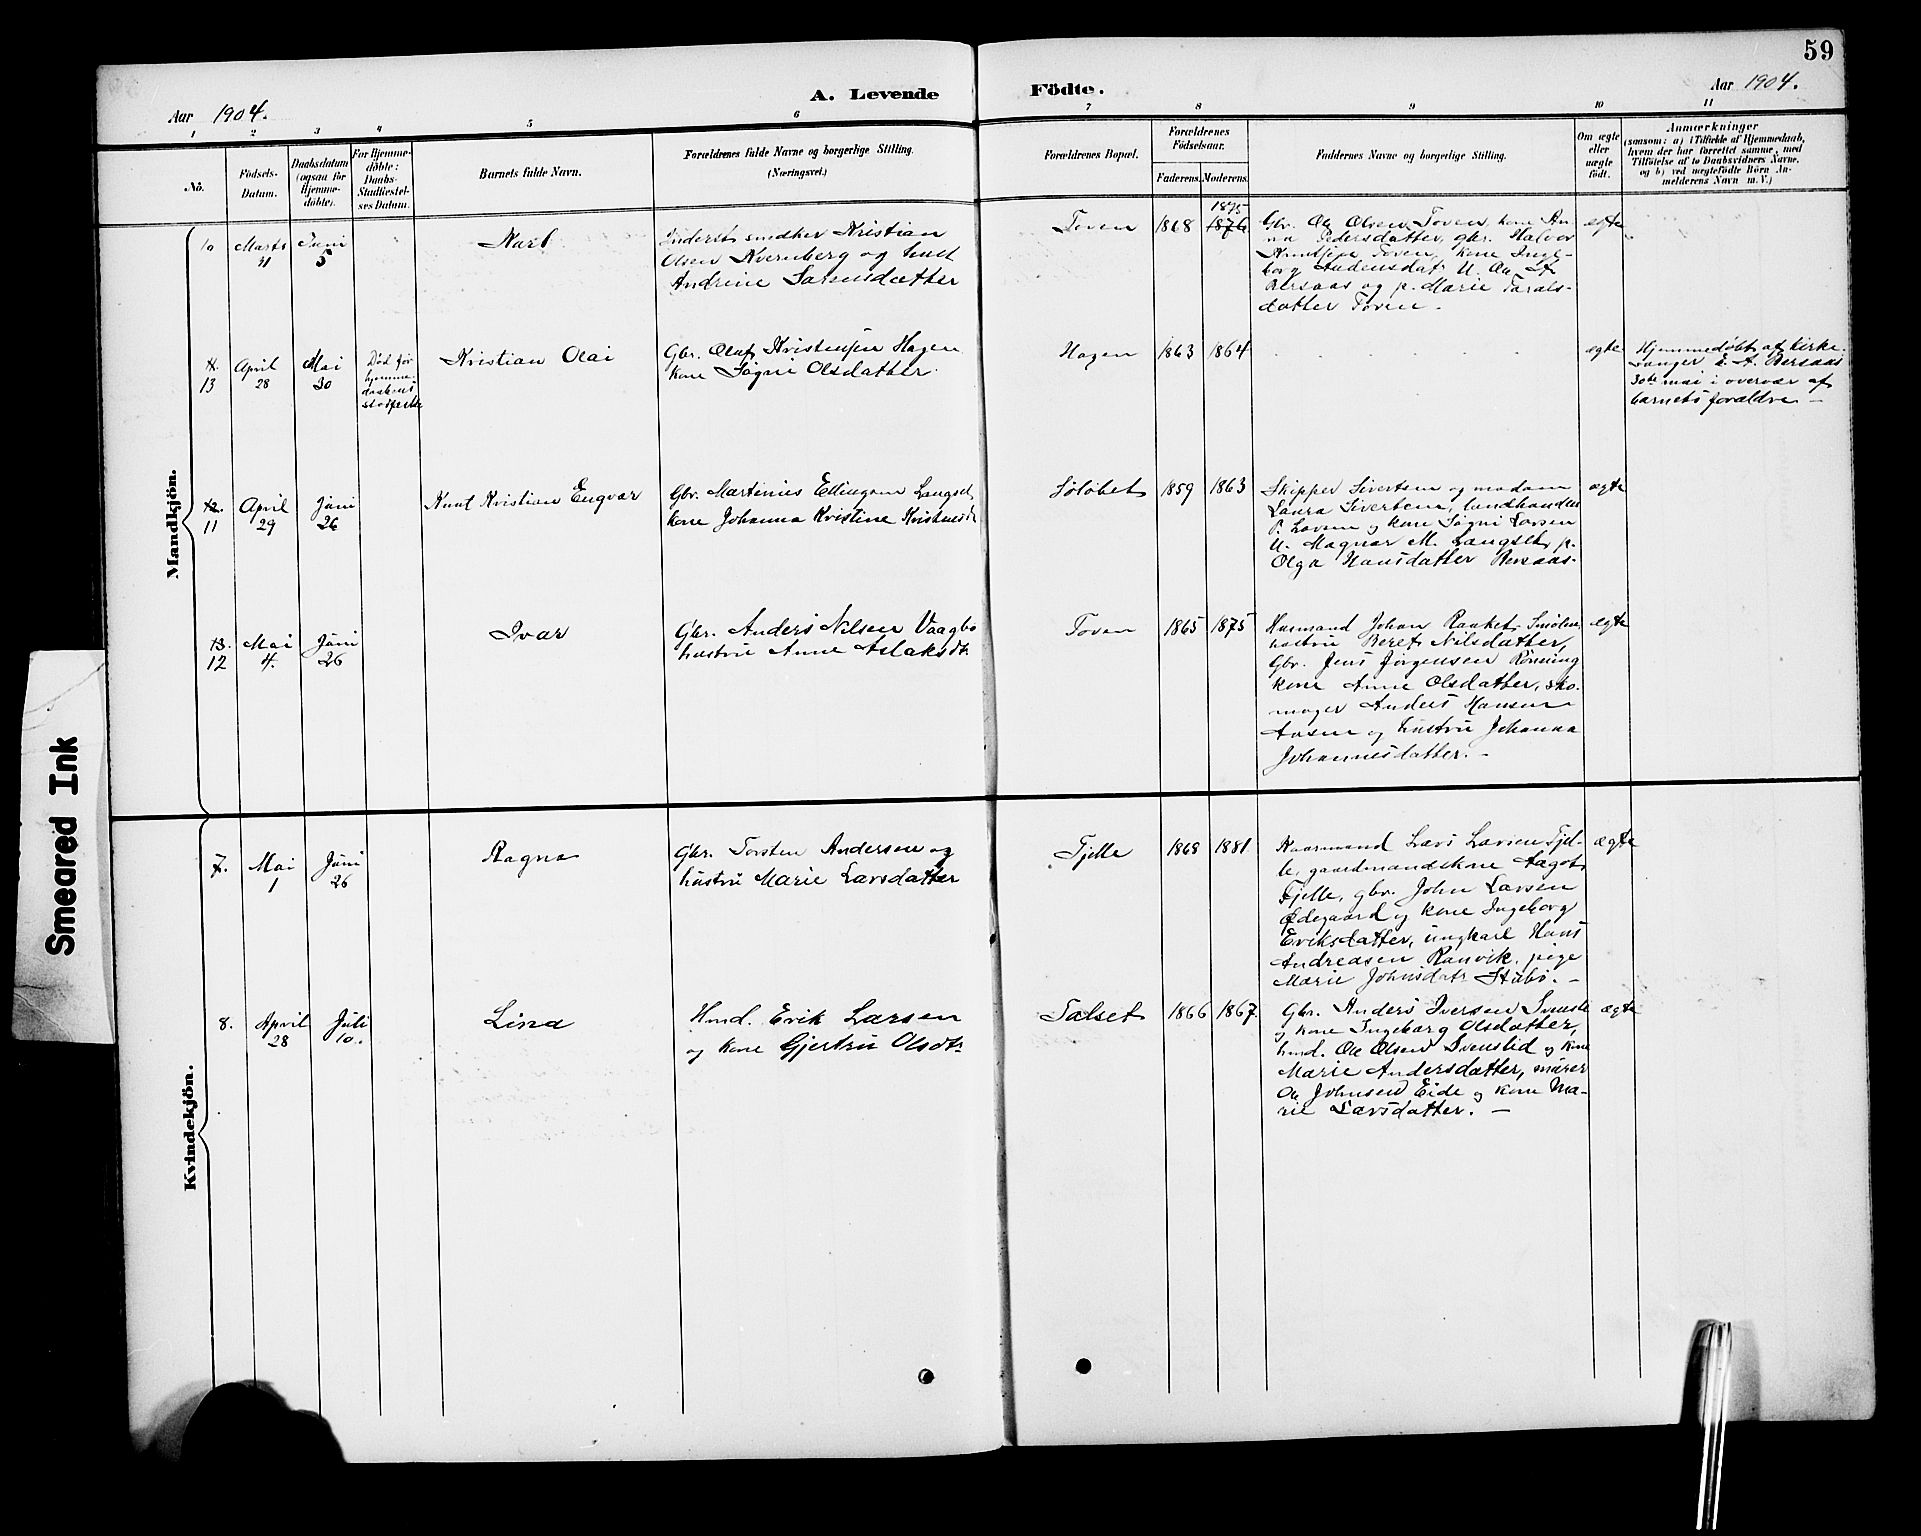 59
Aar 1904.
A. Levende Födte.
Aar 1904.
1 2 3 4 5 6 7 8 9 10 11
Nô.
Födsels-
Datum.
Daabsdatum
(ogsaa for
Hjemme-
döbte).
For Hjemme-
döbte:
Daabs-
Stadfæstel-
ses Datum.
Barnets fulde Navn.
Forældrenes fulde Navne og borgerlige Stilling.
(Næringsvei.)
Forældrenes Bopæl.
Forældrenes
Födselsaar.
Faderens. Moderens.
Faddernes Navne og borgerlige Stilling.
Om ægte
eller
uægte
født.
Anmærkninger
(saasom: a) i Tilfælde af Hjemmedaab,
hvem der har forrettet samme, med
Tilföielse af to Daabsvidners Navne,
og b) ved uægtefödte Börn An-
melderens Navn m. V.)
Mandkjön.
10
Marts
31
Juni
5
Karl
Inderst, snedker Kristian
Olsen Kvernberg og hust
Andrine Sørensdatter
Toven
1868
1875
1876
Gbr. Ole Olsen Toven, kone An-
na Pedersdatter, gbr. Halvor
Knutsen Toven, kone Inge-
borg Andersdat. U. Ole A
Bersaas og p. Marie Tarals-
datter Toven.
ægte
11.
13
April
28
Mai
30
Død før
hjemme
daabens
stadfestelse
Kristian Olai
Gbr. Olaf Kristensen Hagen
kone Sögni Olsdatter.
Hagen
1863
1864
ægte
Hjemmedøbt af kirke-
sanger E. A. Bersaas
30te mai i overvær af
barnets forældre —
12.
11
April
29
Juni
26
Knut Kristian Engvar
Gbr. Martinus Ellingsen Langset
kone Johanna Kristine Kristensdt
Sølsbet
1859
1863
Skipper Sivertsen og madam
Laura Sivertsen, landhandler
P. Larsen og kone Sögni Larsen
U. Magnar M. Langset, p.
Olga Hansdatter Bersaas-
ægte
13.
12
Mai
4.
Juni
26
Ivar
Gbr. Anders Nilsen Vaagbø
hustru Anne Aslaksdt.
Toven
1865
1875
Husmand Johan Raaket Smölen
hustru Beret Nilsdatter,
Gbr. Jens Jørgensen Rønning
kone Anne Olsdatter, sko-
mager Anders Hansen
Aasen og hustru Johanna
Johannesdatter. —
ægte
Kvindekjön.
7.
Mai
1
Juni
26
Ragna
Gbr. Torsten Andersen og
hustru Marie Larsdatter
Tjelle
1868
1881
Kaarmand Lars Larsen Tjel-
le, gaardmandskone Aagot
Tjelle, gbr. John Larsen
Ødegaard og kone Ingeborg
Eriksdatter, ungkarl Hans
Andreasen Ranvik, pige
Marie Johnsdatr Stubø. —
ægte
8.
April
28
Juli
10.
Lina
Hmd. Erik Larsen
og kone Gjertru Olsdtr
Talset
1866
1867
Gbr. Anders Iversen Svensli
og kone Ingeborg Olsdatter,
hmd. Ole Olsen Svenslid og kone
Marie Andersdatter, murer
Ole Johnsen Eide og kone Ma-
rie Larsdatter. —
ægte
Smeared Ink